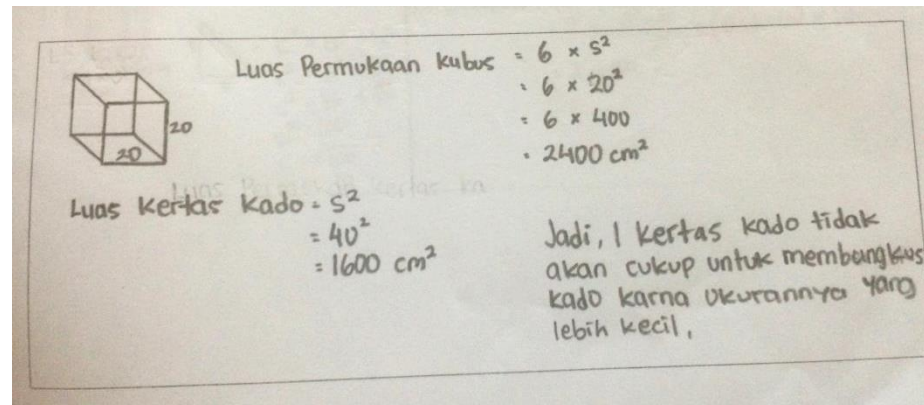 Luas Permukaan kubus = 6 × s²
= 6 × 20²
= 6 × 400
= 2400 cm²
20
20
Luas kertas kado = s²
= 40²
= 1600 cm²
Jadi, 1 kertas kado tidak
akan cukup untuk membungkus
kado karna ukurannya yang
lebih kecil,